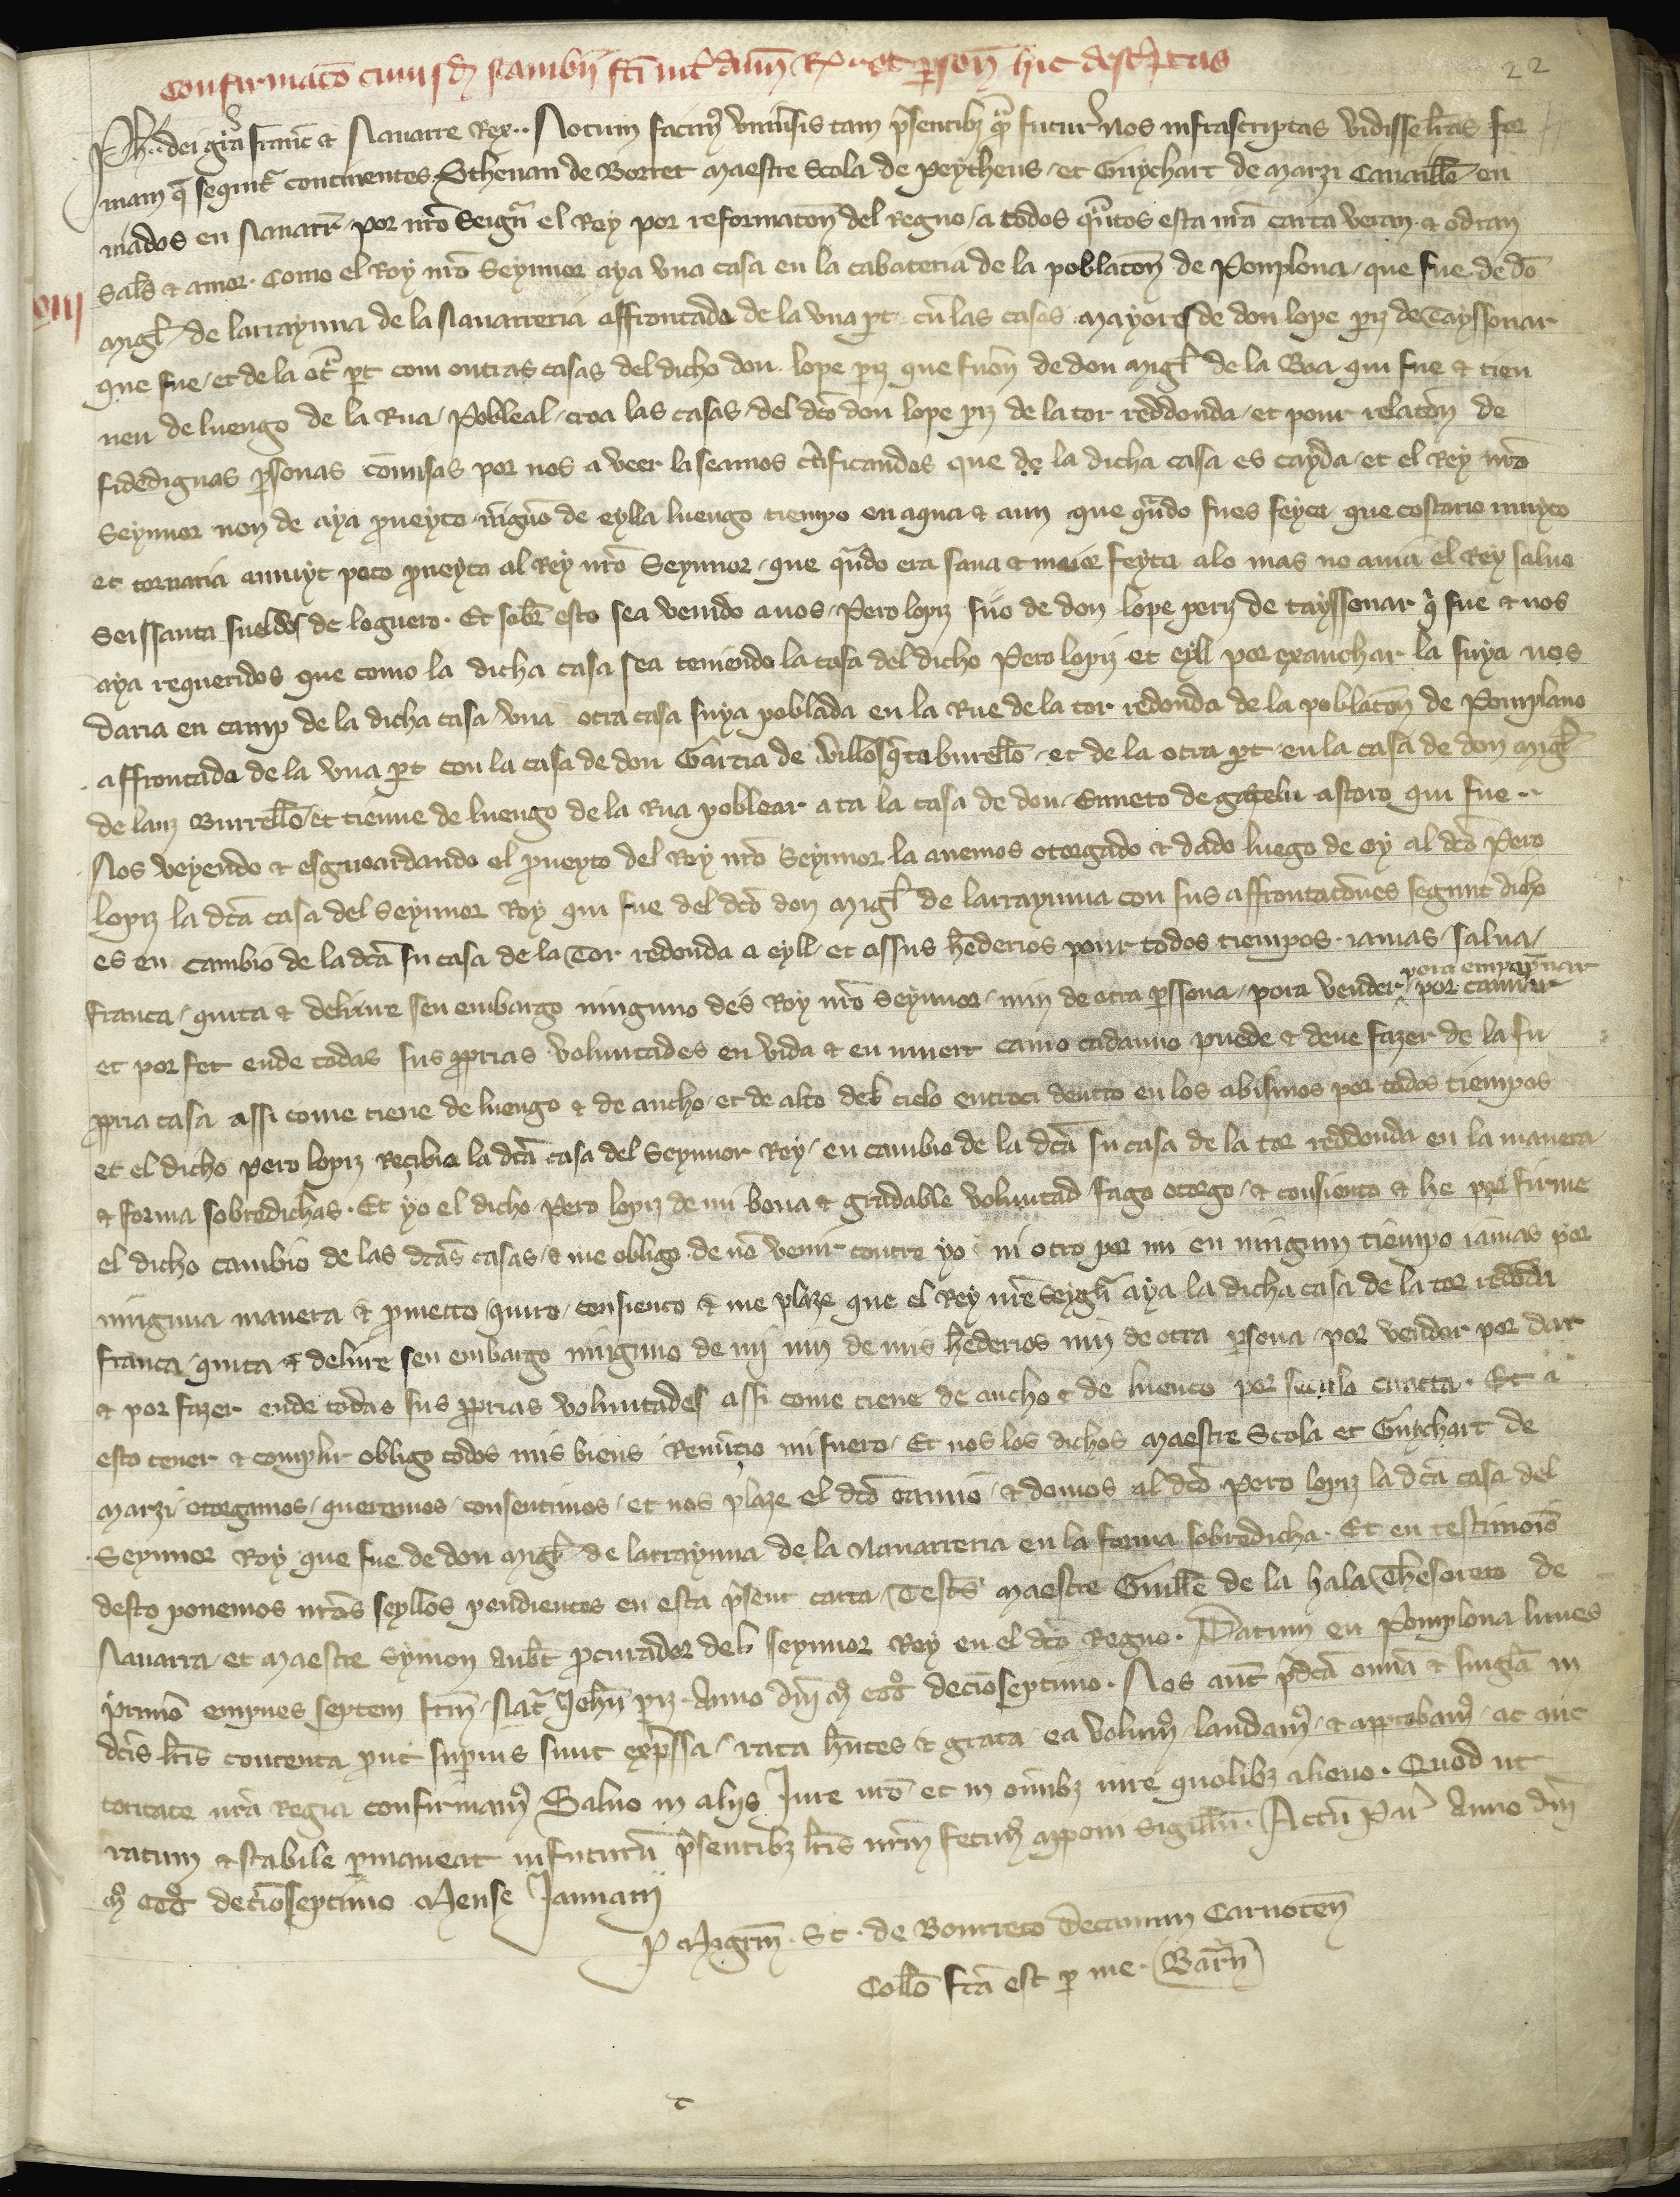 Confirmacō cuiusdā scambii fc̄i int̄ dn̄m R. et ꝑson̄ hic desc̄ptas
22
Ph. dei grā franc̄ et Nauarre Rex.. Notum facim᷒ vniu̾sis tam p̄sentibꝫ q̄ futur᷒ nos infrascriptas vidisse l̄ras for
mam q̄ sequit᷒ continentes. Stheuan de Borret maestre Scola de Peytheus / et Guychart de Marzi Cauaill̄o en
uiados en Nauarr̄ por nr̄o Seign̄r el Rey por reformaton̄ del regno / a todos qu̾ntos esta nr̄a carta veran et odran
Salut et amor. Como el Rey nr̄o Seynnor aya vna casa en la cabateria de la poblaton̄ de Ponplona / que fue de dō
VIII
Migl̄ de larraynna de la Nauarreria affrontada de la vna ꝑt cū las casas mayores de don lope pꝫ de Tayssonar
que fue / et de la ot̄ ꝑt com outras casas del dicho don lope pꝫ que fuōn de don Migl̄ de la Boa qui fue et tien
nen de luengo de la Rua / Pobleal / troa las casas del dc̄o don lope pꝫ de la tor reddonda / et pour relaton̄ de
fidedignas ꝑsonas cōmisas por nos a veer la seamos c̄tificandos que de la dicha casa es cayda / et el Rey nr̄o
Seynnor non de aya ꝓueyto ni̾guno de eylla luengo tiempo en aqua et aun que q̄ndo fues feyta que costario muyto
et tornaria a muyt poco ꝓueyto al Rey nr̄o Seynnor / que q̄ndo era sana et maior feyta alo mas no auia el Rey saluo
Seissanta sueldos de loguero. Et sob̄r esto sea venido a nos Pero lopiz fijo de don lope periz de tayssonar q̄ fue et nos
aya requeridos que como la dicha casa sea teniendo la casa del dicho Pero lopiz et eyll por exanchar la suya nos
daria en camp de la dicha casa vna otra casa suya poblada en la Rue de la tor redonda de la poblaton̄ de Ponplano
affrontada de la vna ꝑt con la casa de don Garcia de villos̄ta burell̄o / et de la otra ꝑt en la casa de don Migl̄
de lanz Burrell̄o et tienne de luengo de la Rua poblear ata la casa de don Enneto de gatelu astoro qui fue..
Nos veyendo et esguoardando el ꝓueyto del Rey nr̄o Seynnor la auemos otorgado et dado luego de oy al dc̄o Pero
lopiz la dc̄a casa del Seynnor Rey qui fue del dc̄o don Migl̄ de larraynna con sus affrontatones segunt dicho
es en cambio de la dc̄a su casa de la Tor redonda a eyll et assus hēderios pour todos tiempos iamas / salua /
franca / quita et deliure sen embargo ninguno des Rey nr̄o Seynnor / nin de otra ꝑssona / pora vender / pora empeynnar por camiar
et por fer ende todas sus ꝓprias voluntades en vida et en muert como cadauno puede et deue fazer de la su
ꝓpria casa assi come tiene de luengo et de ancho et de alto del cielo entroci dentro en los abismos por todos tiempos
et el dicho pero lopiz reçibio la dc̄a casa del Seynnor Rey / en cambio de la dc̄a su casa de la tor reddonda en la manera
et forma sobredichas. Et yo el dicho Pero lopiz de mi bona et gradable voluntad fago otorgo / et consiento et he por firme
el dicho cambio de las dc̄as casas / et me obligo de nō venir contre yo ni otro por mi en ningun tiempo iamas por
ninguna manera et ꝓmetto quito / consiento et me plaze que el Rey nr̄e Seign̄r aya la dicha casa de la tor redōda
franca / quita et deliure sen embargo ninguno de mj nin de mis hēderios nin de otra ꝑsona / por vender por dar
et por fazer ende todas sus ꝓprias voluntades assi come tiene de ancho et de luenco por secula cuncta. Et a
esto tener et complir obligo todos mis biens Renūçio mi fuero. Et nos los dichos Maestre Scola et Guychart de
Marzi otorgamos / queremos / consentimos / et nos plaze el dc̄o camio / et domos al dc̄o Pero lopiz la dc̄a casa del
Seynnor Rey que fue de don Migl̄ de larraynna de la Nauarreria en la forma sobredicha. Et en testimoīo
desto ponemos nr̄os seyllos pendientes en esta p̄sent carta / Test̄s Maestre Guill̄e de la hala Thesorero de
Nauarra et Maestre Symon Aub̄t ꝓcurador del seynnor Rey en el dc̄o Regno. Datum en Pomplona lunes
primo empues septem fr̄m Nat̄ Joh̄n pꝫ. Anno dn̄i M᷒ CCC᷒ decīoseptimo. Nos aut̄ p̄dc̄a om̄ia et singl̄a in
dc̄is l̄ris contenta ꝓut suꝑius sunt exp̄ssa / rata hn̄tes et grata ea volum᷒ / laudam᷒ / et approbam᷒ / ac auc
toritate nr̄a Regia confirmam᷒ Saluo in aliis Jure nr̄o et in om̄ibꝫ iure quolibꝫ alieno. Quod ut
ratum et stabile ꝑmaneat in futurū p̄sentibꝫ l̄ris nr̄m fecim᷒ apponi Sigill̄u. Actū Par̄ Anno dn̄i
M᷒ CCC᷒ decīoseptimo Mense Januarii
P Magr̄m. St. de Bourreto Decanum Carnoten̄
Coll̄o fc̄a est ꝑ me. Barr̄n